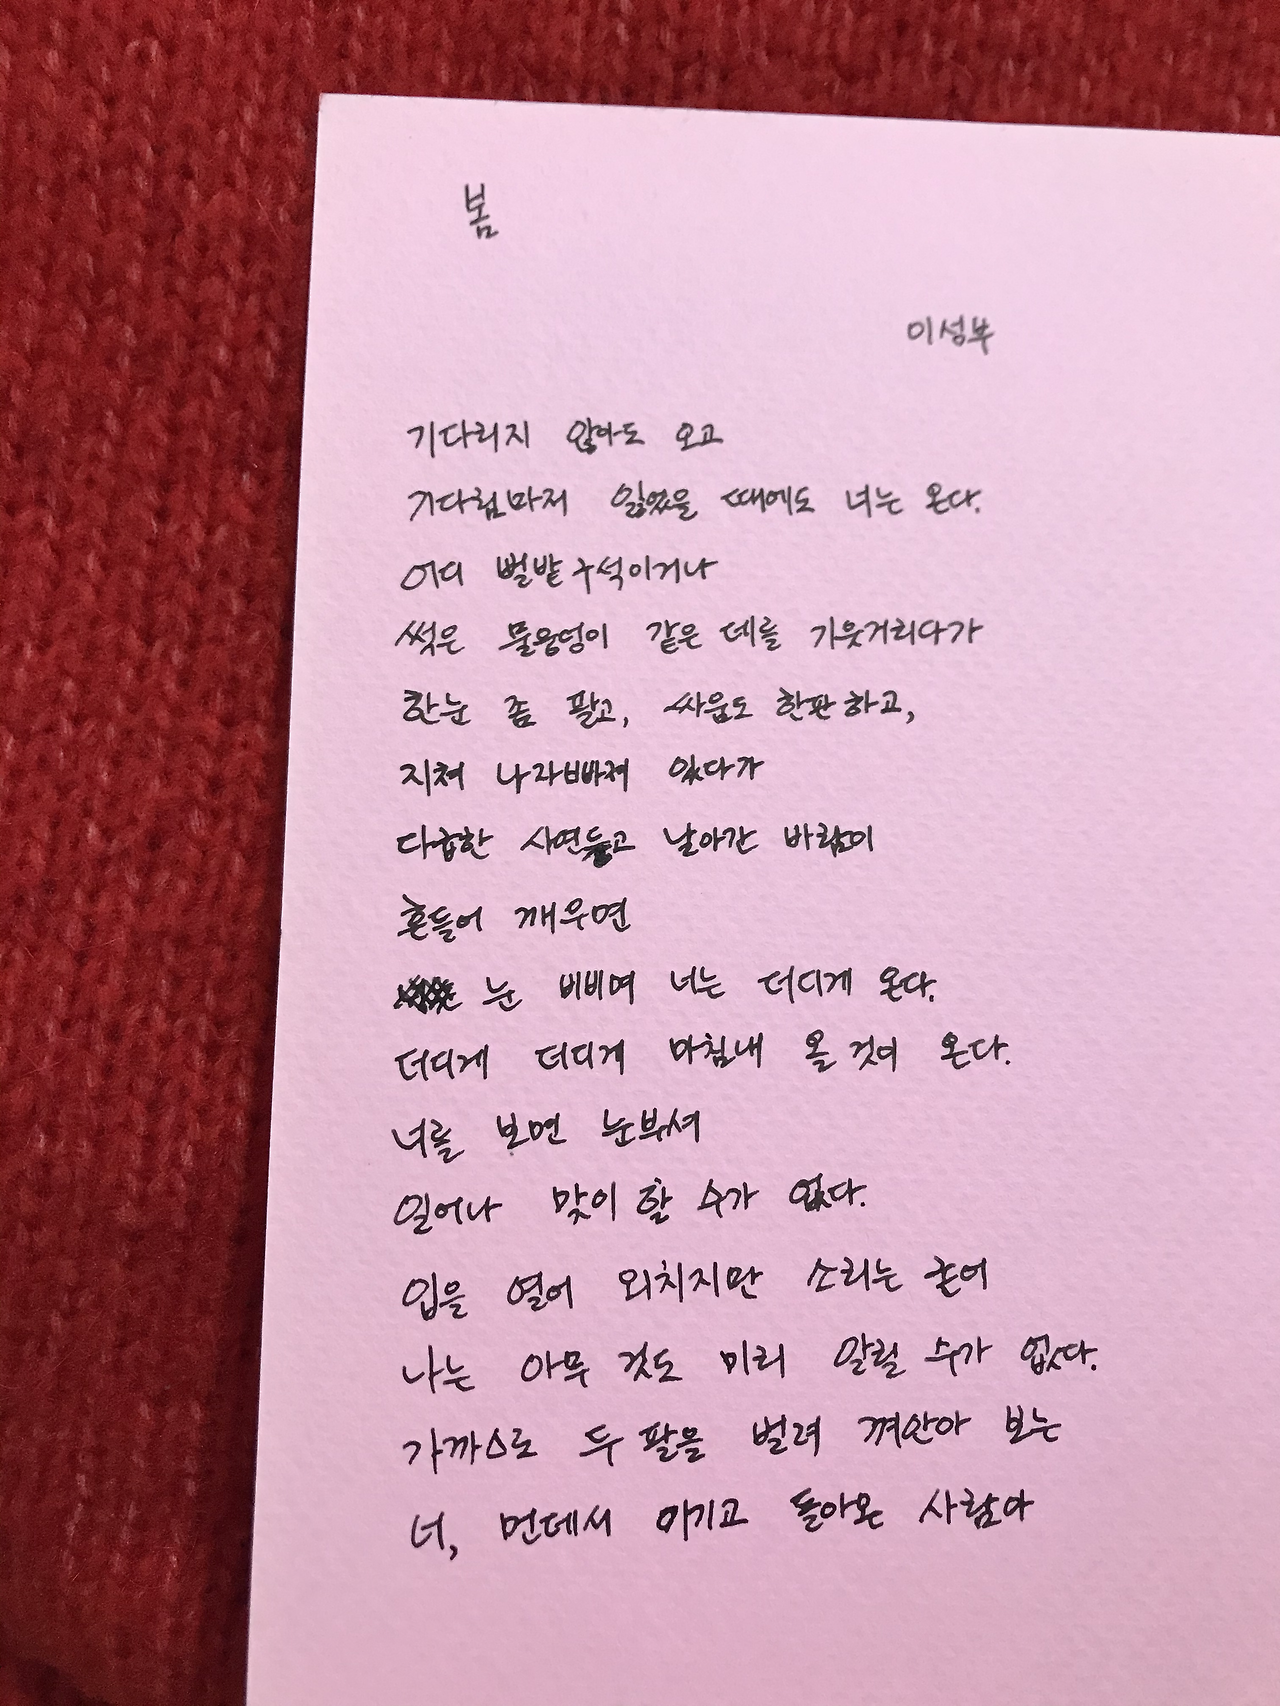 봄
이성부
기다리지 않아도 오고
기다림마저 잃었을 때에도 너는 온다.
어디 뻘밭 구석이거나
썩은 물웅덩이 같은 데를 기웃거리다가
한눈 좀 팔고, 싸움도 한판 하고,
지쳐 나자빠져 있다가
다급한 사연 듣고 날아간 바람이
흔들어 깨우면
눈 비비며 너는 더디게 온다.
더디게 더디게 마침내 올 것이 온다.
너를 보면 눈부셔
일어나 맞이 할 수가 없다.
입을 열어 외치지만 소리는 굳어
나는 아무 것도 미리 알릴 수가 없다.
가까스로 두 팔을 벌려 껴안아 보는
너, 먼데서 이기고 돌아온 사람아